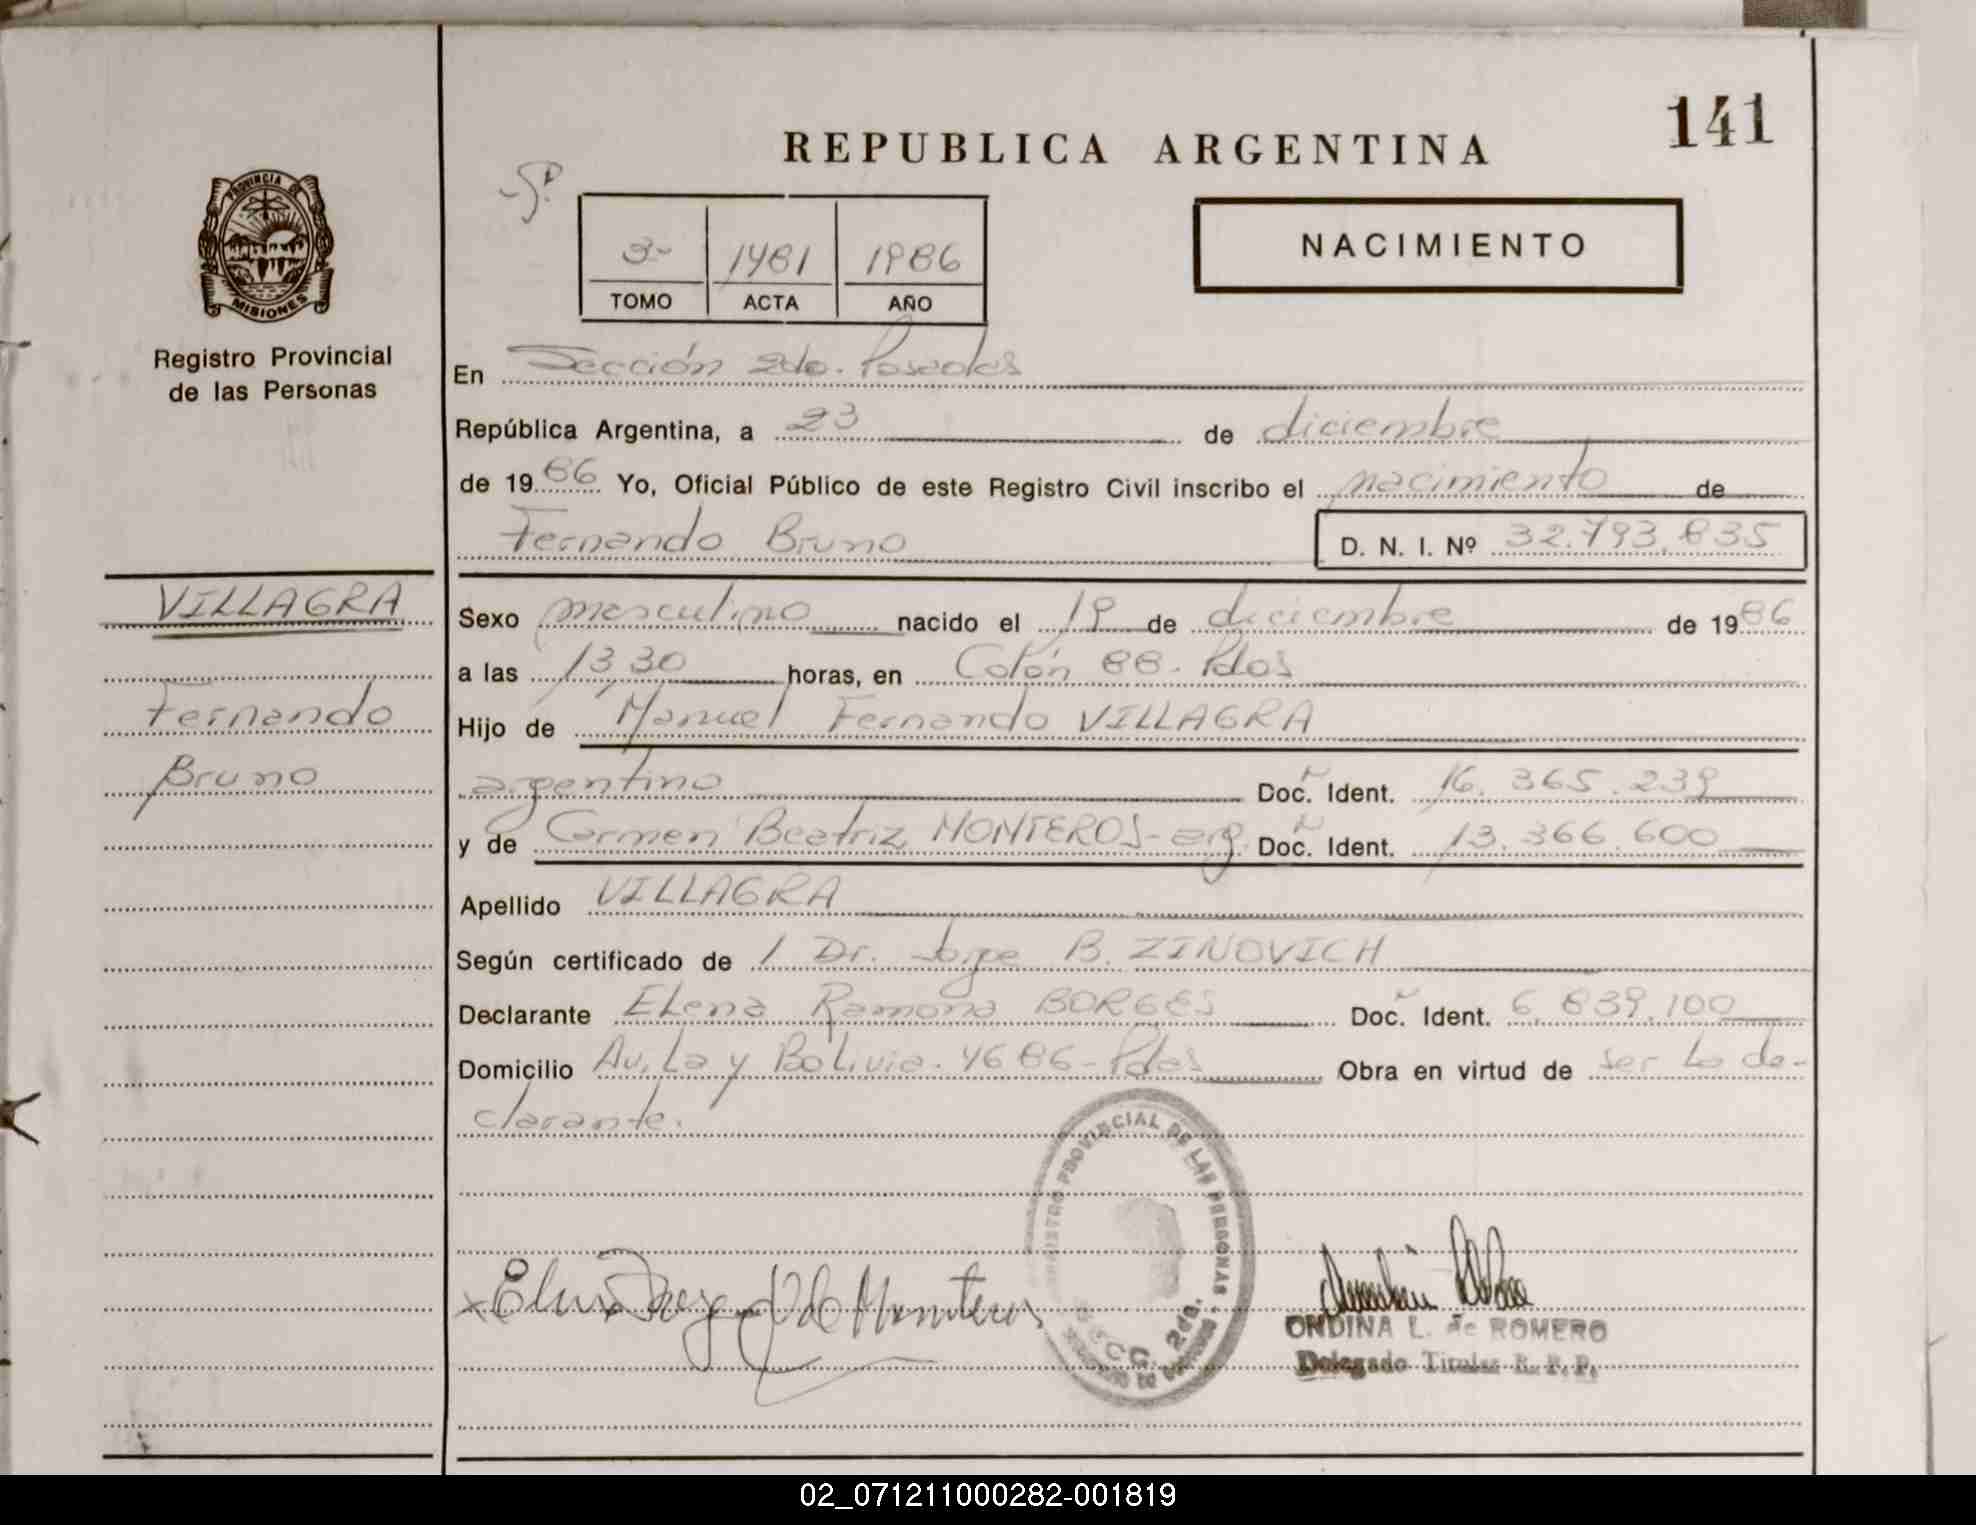 141
REPUBLICA ARGENTINA
PROVINCIA DE
MISIONES
Registro Provincial
de las Personas
3º 1481 1986
TOMO ACTA AÑO
NACIMIENTO
En Sección 2da. Posadas
República Argentina, a 23 de diciembre
de 1986 Yo, Oficial Público de este Registro Civil inscribo el nacimiento de
Fernando Bruno D. N. I. Nº 32.793.835
VILLAGRA
Fernando
Bruno
Sexo masculino nacido el 19 de diciembre de 1986
a las 13,30 horas, en Colón 88. Pdas
Hijo de Manuel Fernando VILLAGRA
argentino Doc. Ident. 16.365.239
y de Carmen Beatriz MONTEROS-arg. Doc. Ident. 13.366.600
Apellido VILLAGRA
Según certificado de / Dr. Jorge B. ZINOVICH
Declarante Elena Ramona BORGES Doc. Ident. 6.839.100
Domicilio Av. La y Bolivia. 4686-Pdas Obra en virtud de ser la de-
clarante.
REGISTRO PROVINCIAL DE LAS PERSONAS
SECC. 2da.
de Monteros
ONDINA L. de ROMERO
Delegado Titular R. P. P.
02_071211000282-001819